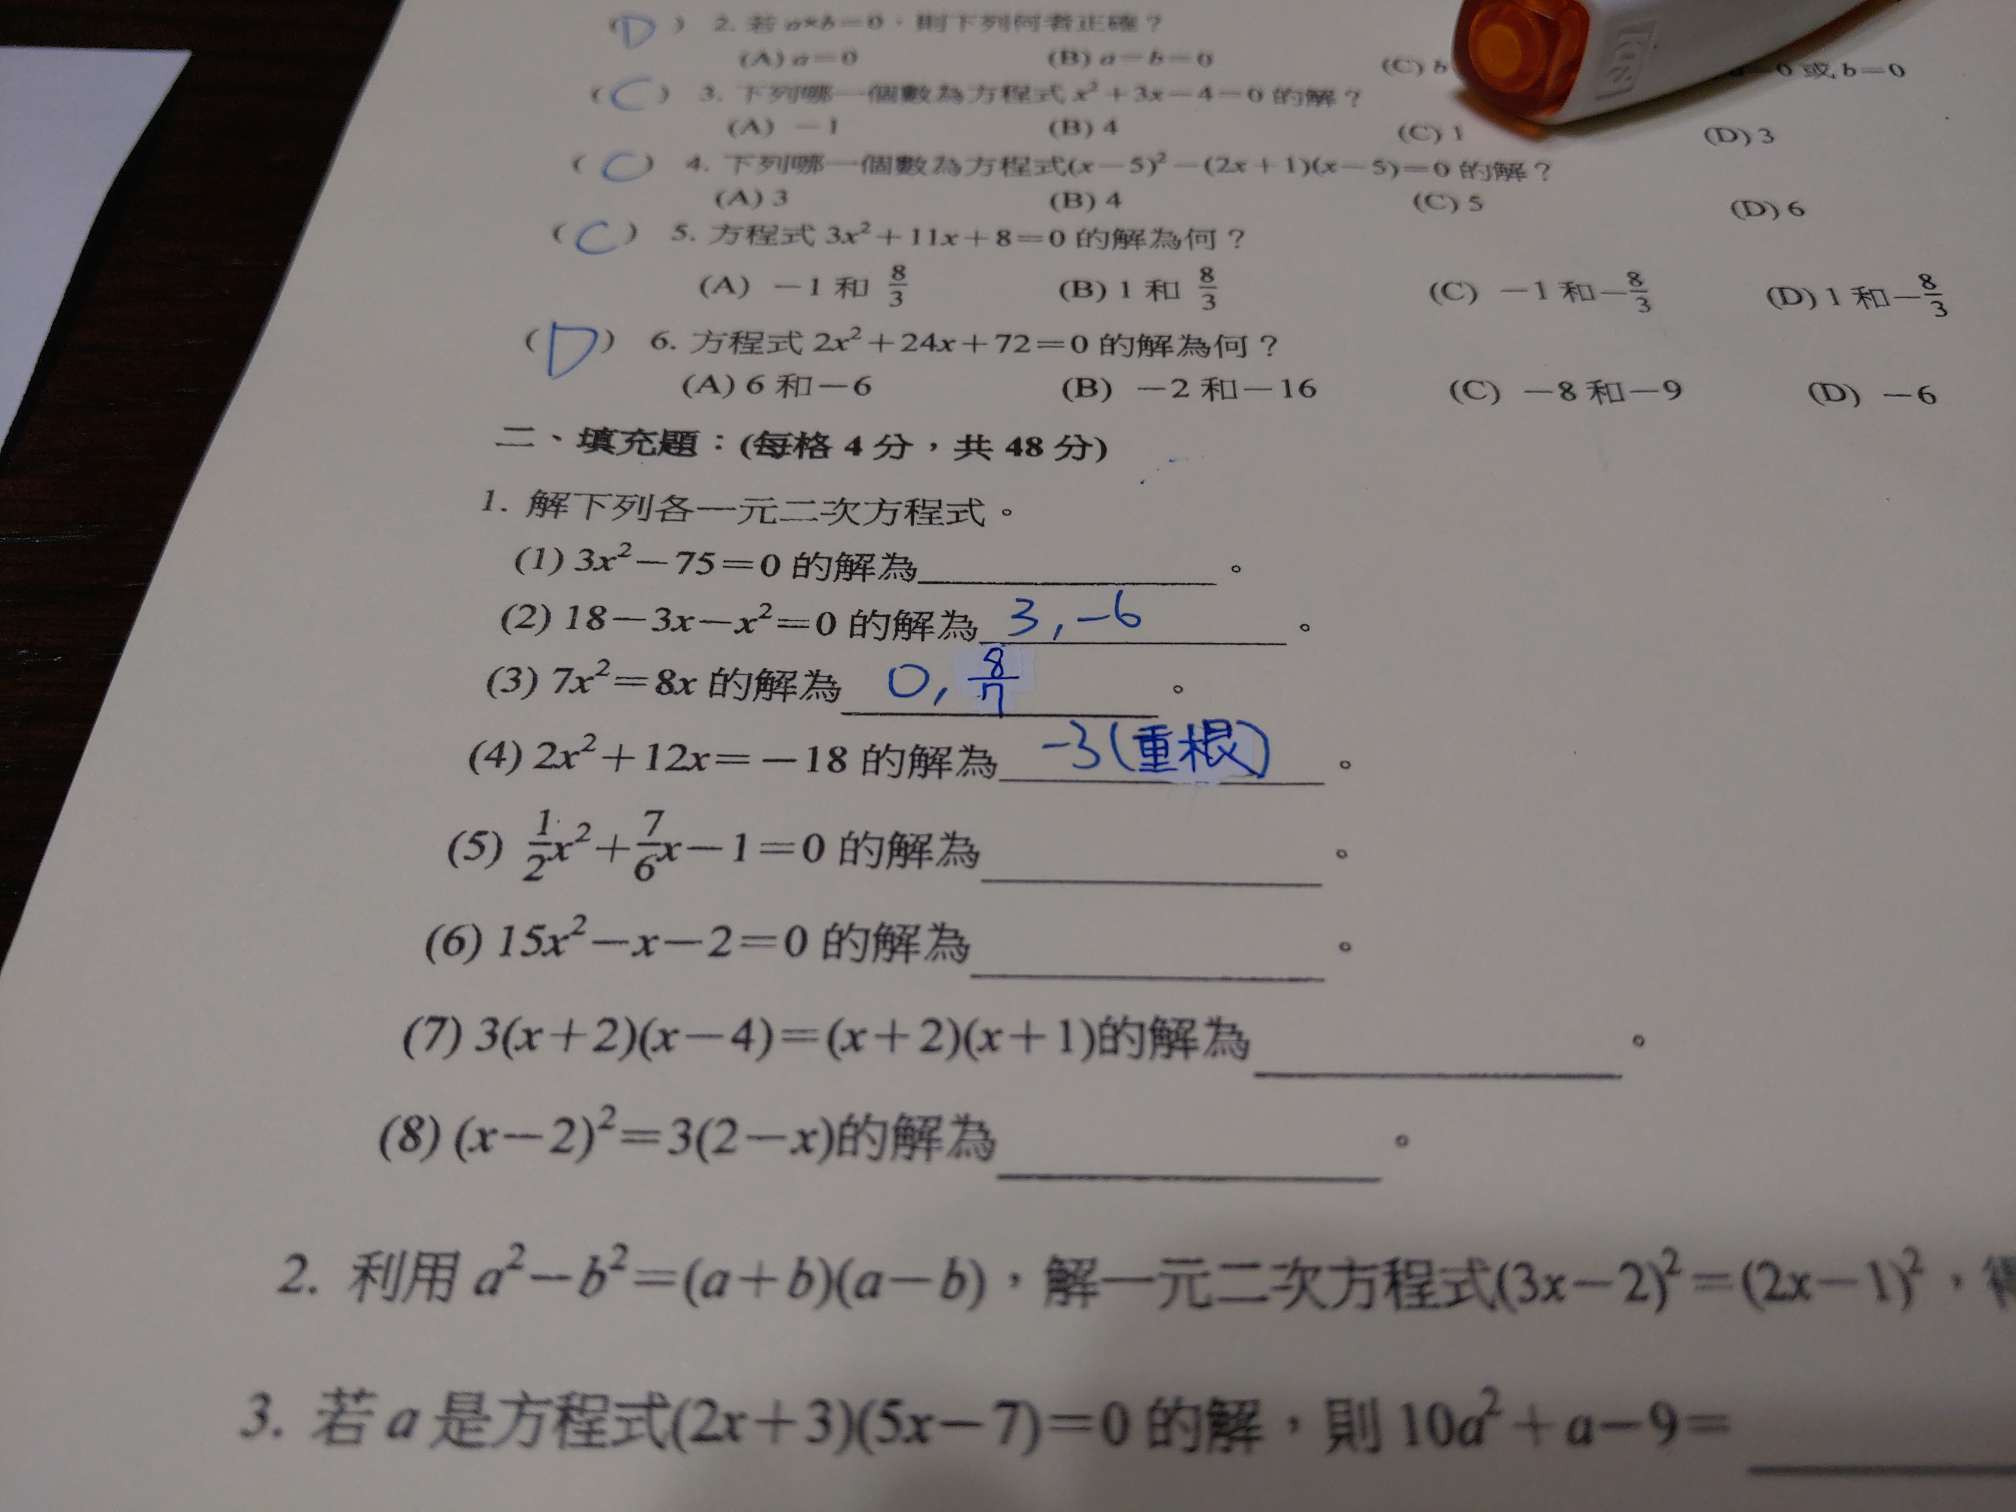 (D) 2. 若 a×b＝0，則下列何者正確？
(A) a＝0 (B) a＝b＝0 (C) b 0 或 b＝0
(C) 3. 下列哪一個數為方程式 x²＋3x－4＝0 的解？
(A) －1 (B) 4 (C) 1 (D) 3
(C) 4. 下列哪一個數為方程式(x－5)²－(2x＋1)(x－5)＝0 的解？
(A) 3 (B) 4 (C) 5 (D) 6
(C) 5. 方程式 3x²＋11x＋8＝0 的解為何？
(A) －1 和 8/3 (B) 1 和 8/3 (C) －1 和－8/3 (D) 1 和－8/3
(D) 6. 方程式 2x²＋24x＋72＝0 的解為何？
(A) 6 和－6 (B) －2 和－16 (C) －8 和－9 (D) －6
二、填充題：(每格 4 分，共 48 分)
1. 解下列各一元二次方程式。
(1) 3x²－75＝0 的解為 。
(2) 18－3x－x²＝0 的解為 3, -6 。
(3) 7x²＝8x 的解為 0, 8/7 。
(4) 2x²＋12x＝－18 的解為 -3(重根) 。
(5) 1/2x²＋7/6x－1＝0 的解為 。
(6) 15x²－x－2＝0 的解為 。
(7) 3(x＋2)(x－4)＝(x＋2)(x＋1)的解為 。
(8) (x－2)²＝3(2－x)的解為 。
2. 利用 a²－b²＝(a＋b)(a－b)，解一元二次方程式(3x－2)²＝(2x－1)²，
3. 若 a 是方程式(2x＋3)(5x－7)＝0 的解，則 10a²＋a－9＝